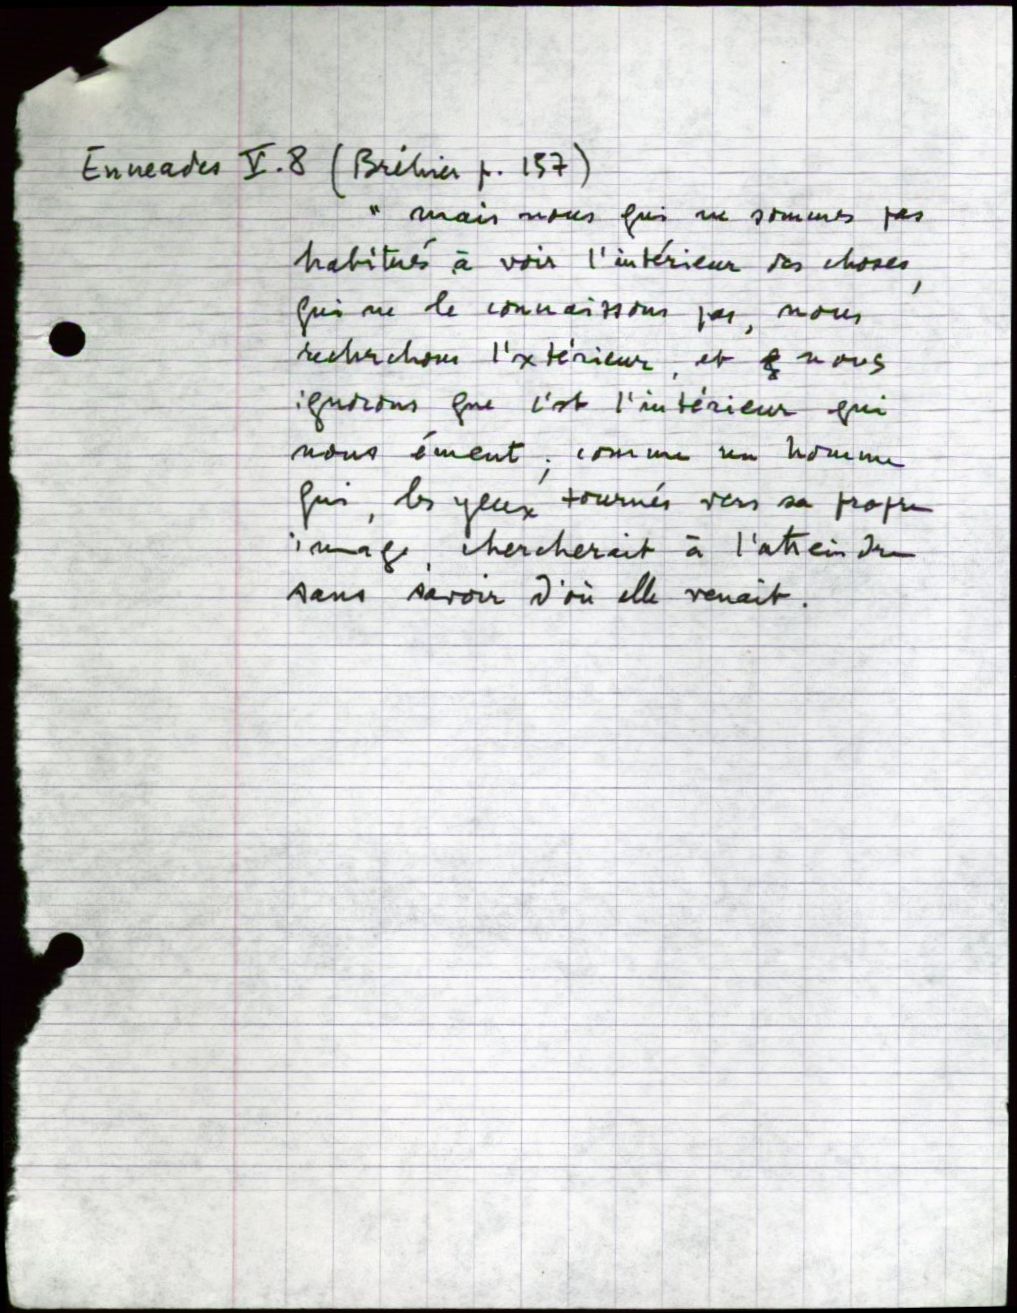 Enneades V.8 (Bréhier p. 137)
" mais nous qui ne sommes pas
habitués à voir l'intérieur des choses,
qui ne le connaissons pas, nous
recherchons l'extérieur, et nous
ignorons que c'est l'intérieur qui
nous émeut ; comme un homme
qui, les yeux tournés vers sa propre
image, chercherait à l'atteindre
sans savoir d'où elle venait.